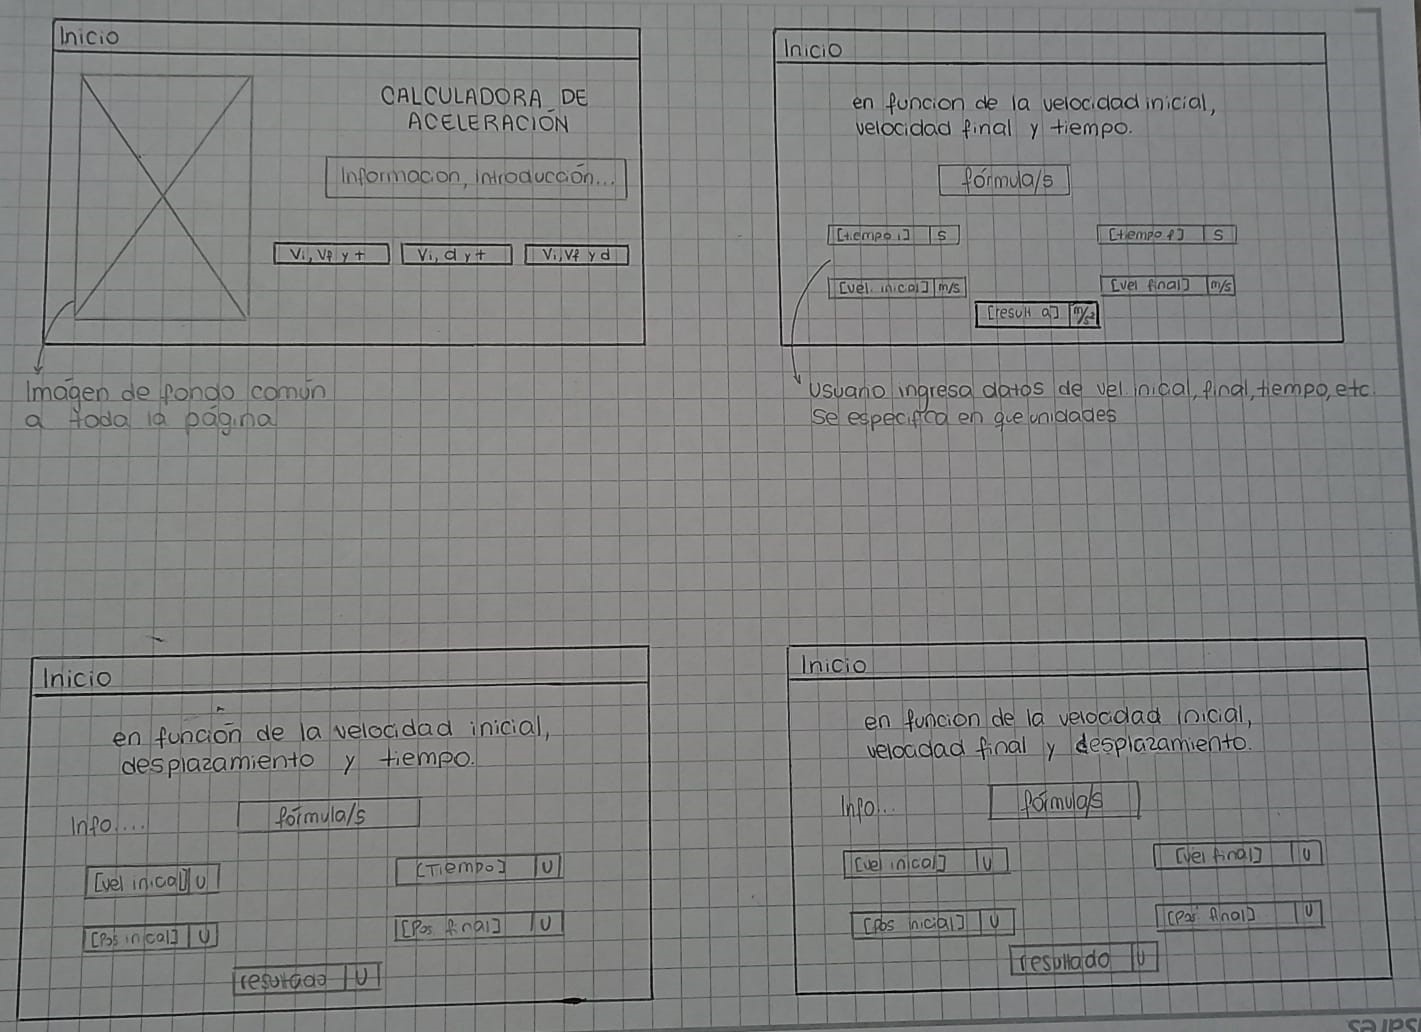 Inicio
CALCULADORA DE
ACELERACIÓN
Informacion, introducción...
Vi, Vf y t
Vi, d y t
Vi, Vf y d
Imagen de fondo común
a toda la página
Inicio
en funcion de la velocidad inicial,
velocidad final y tiempo.
fórmula/s
[tiempo i] s
[tiempo f] s
[vel. inicial] m/s
[vel final] m/s
[result a] m/s²
Usuario ingresa datos de vel. inicial, final, tiempo, etc.
se especifica en que unidades
Inicio
en función de la velocidad inicial,
desplazamiento y tiempo.
Info....
fórmula/s
[vel inicial] U
[Tiempo] U
[Pos inicial] U
[Pos final] U
resultado U
Inicio
en funcion de la velocidad inicial,
velocidad final y desplazamiento.
Info...
fórmula/s
[vel inicial] U
[vel final] U
[pos inicial] U
[pos final] U
resultado U